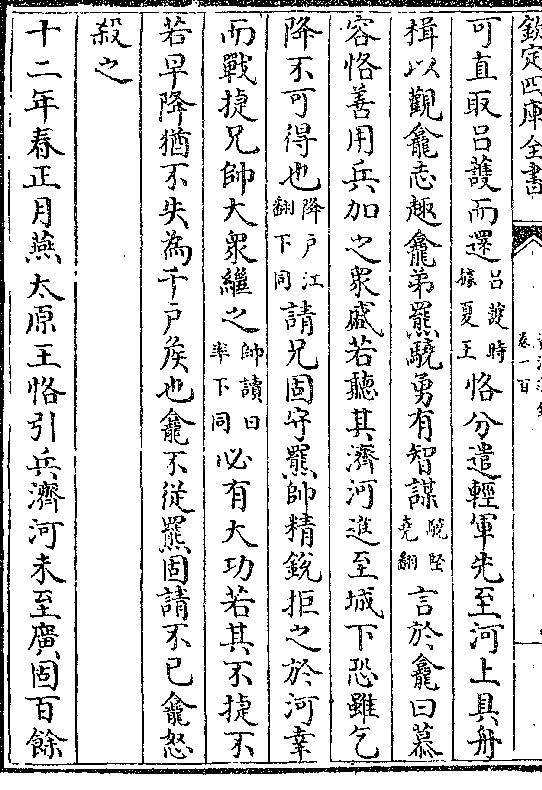 欽定四庫全書
卷一百
可直取呂護而還呂護時據夏王恪分遣輕軍先至河上具舟
楫以觀龕志趣龕弟羆驍勇有智謀驍堅堯翻言於龕曰慕
容恪善用兵加之衆戚若聽其濟河進至城下恐雖乞
降不可得也降戶江翻下同請兄固守羆帥精銳拒之於河幸
而戰捷兄帥大衆繼之帥讀曰率下同必有大功若其不捷不
若早降猶不失為千戶矦也龕不從羆固請不已龕怒
殺之
十二年春正月燕太原王恪引兵濟河未至廣固百餘